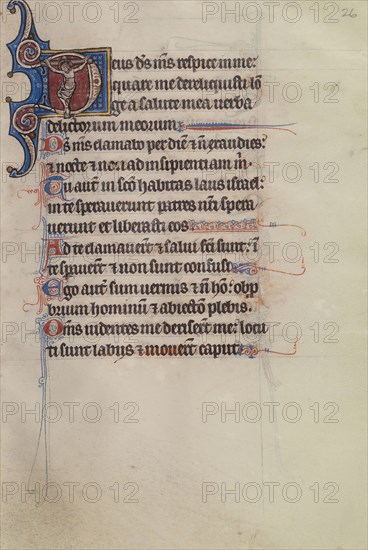 26
Deus ds ms respice in me:
quare me dereliquisti lō
ge a salute mea verba
delictorum meorum
Ds ms clamabo per diē & ñ exaudies:
& nocte & non ad insipientiam m̄.
Tu aut̄ in scō habitas laus israel:
in te speraverunt patres nr̄i spera
verunt et liberasti eos
Ad te clamaver̄t & salvi fc̄i sunt: ī
te spaver̄t & non sunt confusi
Ego aut̄ sum vermis & ñ hō: obp
brium hominū & abiectio plebis.
Om̄s videntes me deriser̄t me: locu
ti sunt labiis & mover̄t caput
PHOTO 12